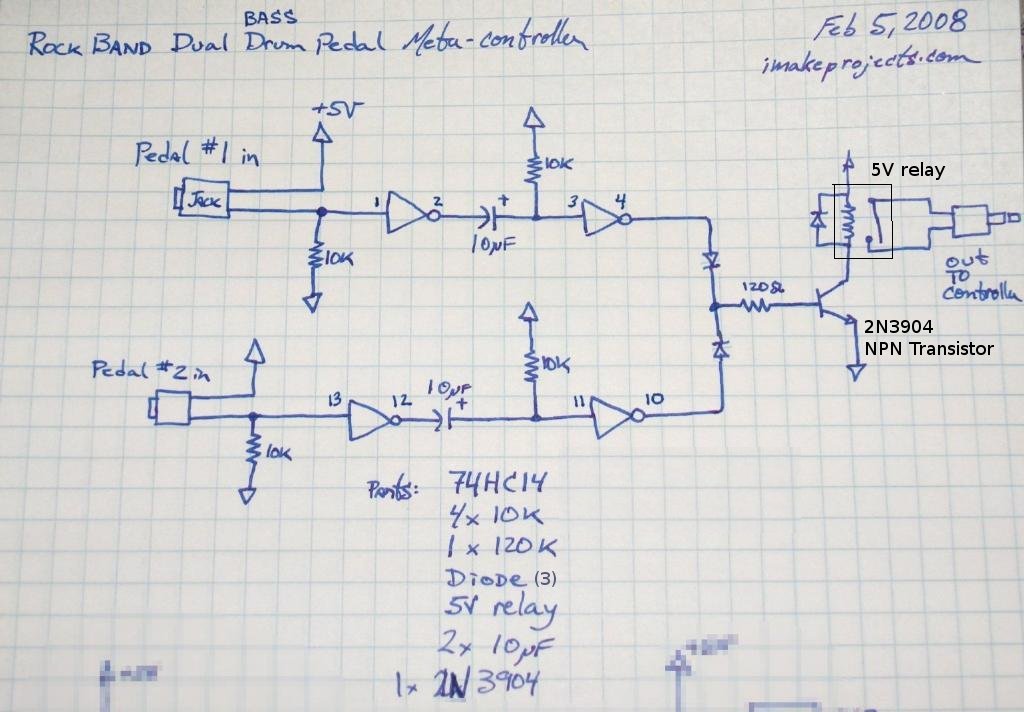 BASS
ROCK BAND Dual Drum Pedal Meta-controller
Feb 5, 2008
imakeprojects.com
+5V
Pedal #1 in
JACK
1
2
10K
3
4
10µF
10K
5V relay
120Ω
OUT
TO
Controller
2N3904
NPN Transistor
Pedal #2 in
10K
13
12
10µF
+
10K
11
10
+
Parts:
74HC14
4x 10K
1 x 120K
Diode (3)
5V relay
2x 10µF
1x 2N3904